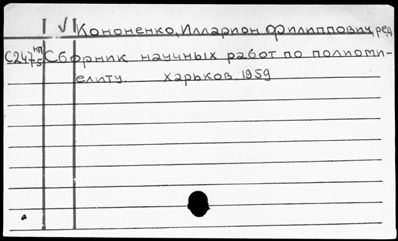 √ Кононенко, Илларион Филиппович, ред
С247 нп 75 Сборник научных работ по полиоми-
елиту. Харьков. 1959